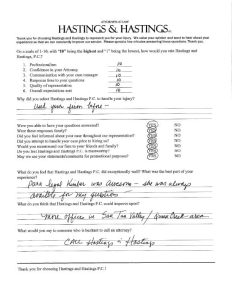 ATTORNEYS AT LAW
HASTINGS & HASTINGS
Thank you for choosing Hastings and Hastings to represent you for your injury. We value your opinion and want to hear about that
experience so that we can constantly improve our service. Please spend a few minutes answering these questions. Thank you.
On a scale of 1-10, with "10" being the highest and "1" being the lowest, how would you rate Hastings and
Hastings, P.C.?
1. Professionalism 10
2. Confidence in your Attorney 10
3. Communication with your case manager 10
4. Response time to your questions 10
5. Quality of representation 10
6. Overall expectations met 10
Why did you select Hastings and Hastings P.C. to handle your injury?
used your firm before
Were you able to have your questions answered? YES NO
Were these responses timely? YES NO
Did you feel informed about your case throughout our representation? YES NO
Did you attempt to handle your case prior to hiring us? YES NO
Would you recommend our firm to your friends and family? YES NO
Do you feel Hastings and Hastings P.C. is trustworthy? YES NO
May we use your statements/comments for promotional purposes? YES NO
What do you feel that Hastings and Hastings P.C. did exceptionally well? What was the best part of your
experience?
legal was Awesome - she was always
available for my questions
What do you think Hastings and Hastings P.C. could improve upon?
more offices in San Tan Valley / Queen Creek area
What would you say to someone who is hesitant to call an attorney?
Call Hastings & Hastings
Thank you for choosing Hastings and Hastings P.C.!